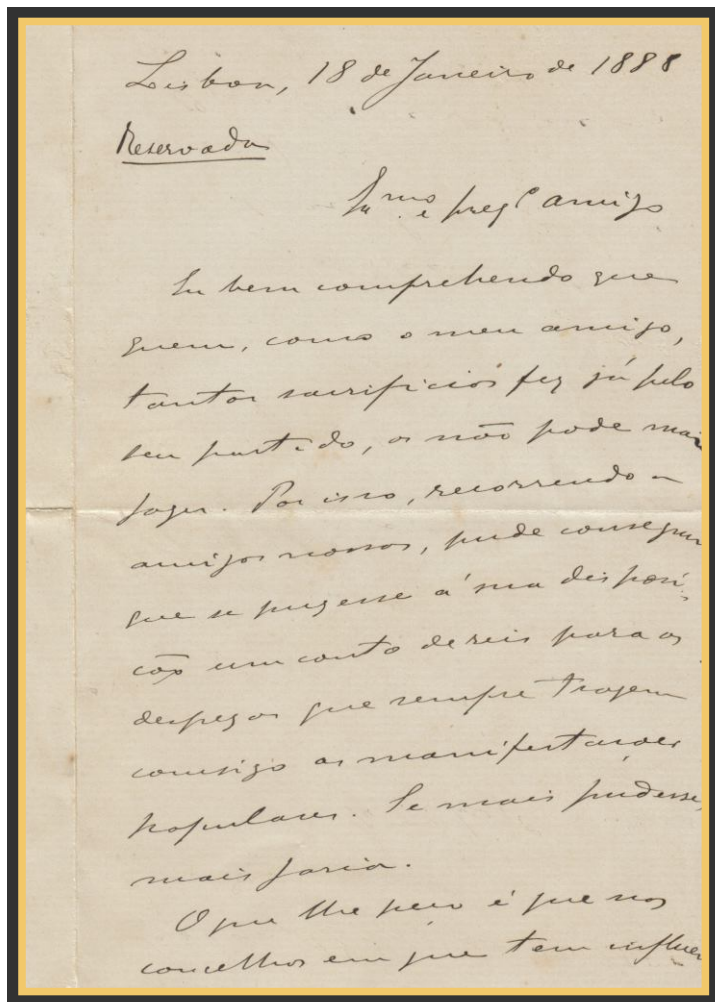 Lisboa, 18 de Janeiro de 1888
Reservada
Exmo e prezo amigo
Eu bem comprehendo que
quem, como o meu amigo,
tantos sacrificios fez já pelo
seu partido, os não pode mais
fazer. Por isso, recorrendo a
amigos nossos, pude conseguir
que se puzesse á sua disposi-
ção um conto de reis para as
despezas que sempre trazem
comsigo as manifestações
populares. Se mais pudesse,
mais faria.
O que lhe peço é que nos
concelhos em que tem influen